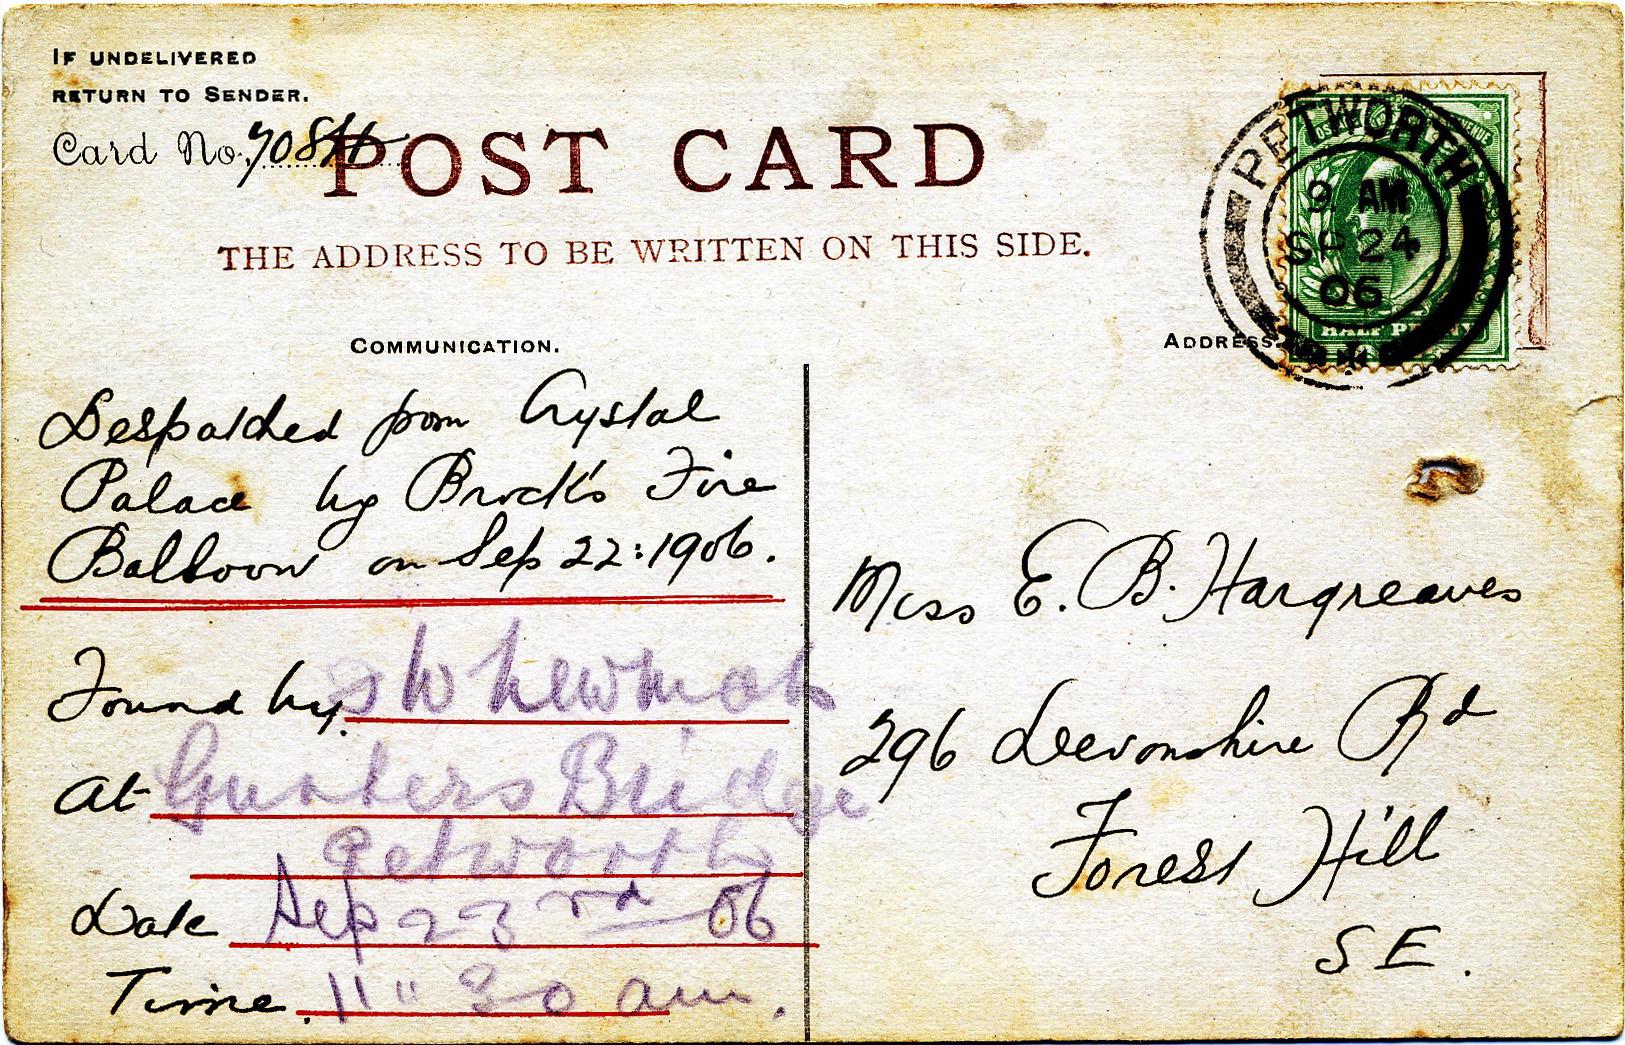 IF UNDELIVERED
RETURN TO SENDER.
Card No.
POST CARD
THE ADDRESS TO BE WRITTEN ON THIS SIDE.
PETWORTH
9 AM
SP 24
06
HALF PENNY
COMMUNICATION.
ADDRESS.
Despatched from Crystal
Palace by Brock's Fire
Balloon on Sep 22:1906.
Found by.
At Gunters Bridge
Petworth
Date Sep 23rd 06
Time. 11" 30 am.
Miss E. B. Hargreaves
296 Devonshire Rd
Forest Hill
S E.